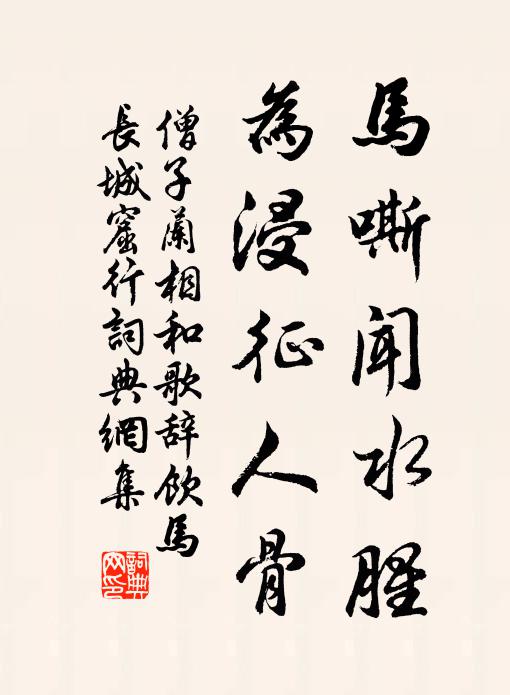 馬嘶聞水腥
為浸征人骨
僧子蘭相和歌辞飲馬
長城窟行詞典網集
詞典網印